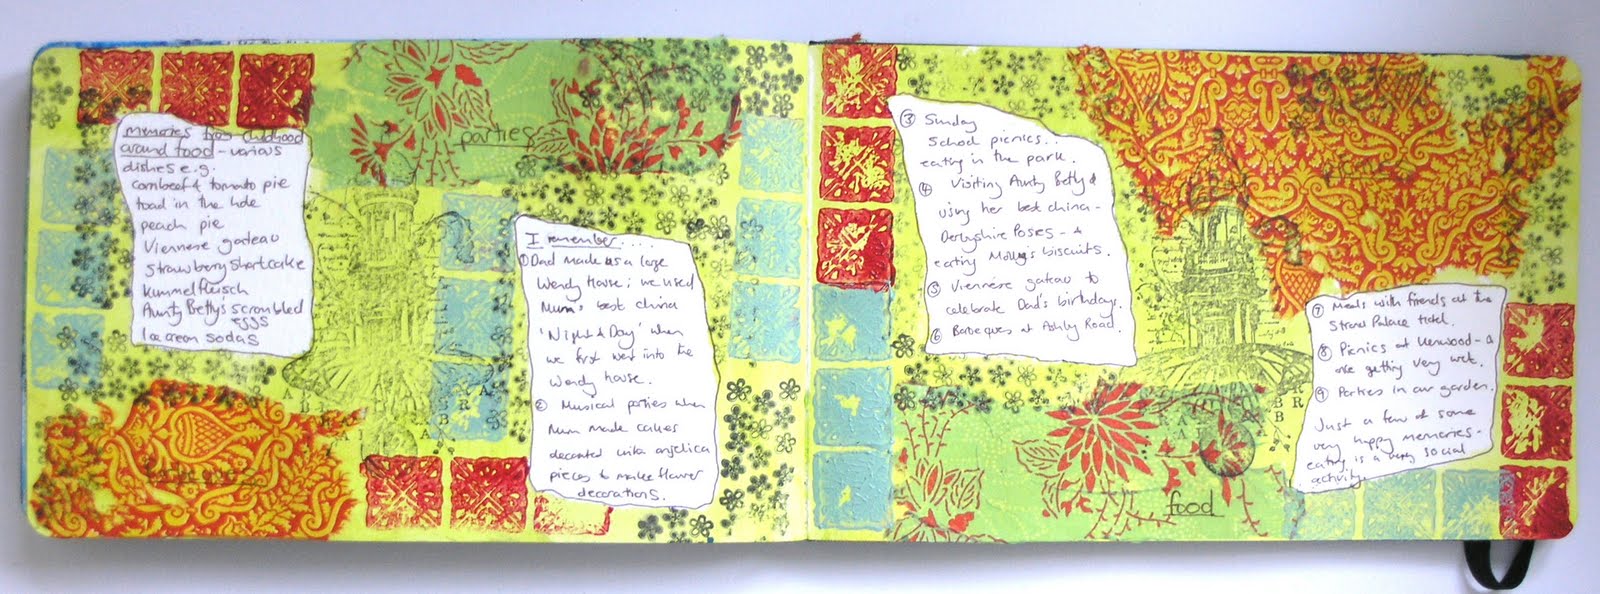 memories from childhood
around food - various
dishes e.g.
cornbeef & tomato pie
toad in the hole
peach pie
Viennese gateau
Strawberry shortcake
kummelfleisch
Aunty Betty's scrambled
eggs
Ice cream sodas
parties
I remember....
① Dad made us a large
Wendy House; we used
Mum's best china
'Night & Day' when
we first went into the
Wendy house.
② Musical parties when
Mum made cakes
decorated with anjelica
pieces to make flower
decorations.
③ Sunday
School picnics..
eating in the park.
④ Visiting Aunty Betty &
using her best china -
Derbyshire Poses - &
eating Molly's biscuits.
⑤ Viennese gateau to
celebrate Dad's birthdays.
⑥ Barbeques at Ashby Road.
⑦ Meals with friends at the
Strand Palace Hotel.
⑧ Picnics at Kenwood - a
one getting very wet.
⑨ Parties in our garden.
Just a few of some
very happy memories -
eating is a very social
activity.
food